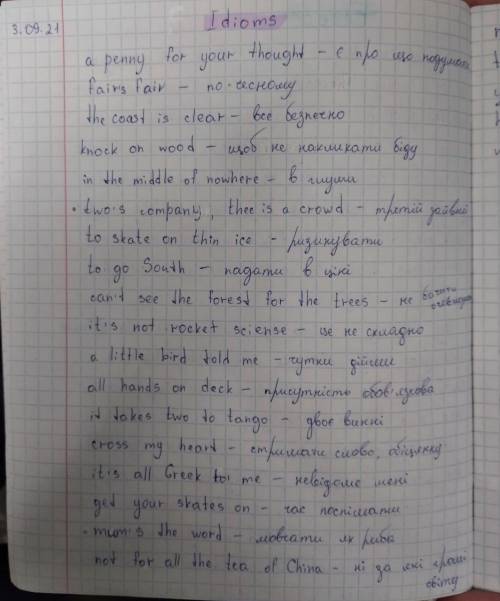 3.09.21
Idioms
a penny for your thought - є про що подумати
fairs fair - по-чесному
the coast is clear - все безпечно
knock on wood - щоб не накликати біду
in the middle of nowhere - в глуши
• two's company, thee is a crowd - третій зайвий
to skate on thin ice - ризикувати
to go South - падати в ціні
can't see the forest for the trees - не бачити очевидне
it's not rocket sciense - це не складно
a little bird told me - чутки дійшли
all hands on deck - присутність обов'язкова
it takes two to tango - двоє винні
cross my heart - стримати слово, обіцянку
it's all Greek to me - невідоме мені
get your skates on - час поспішати
• mum's the word - мовчати як риба
not for all the tea of China - ні за які гроші світу